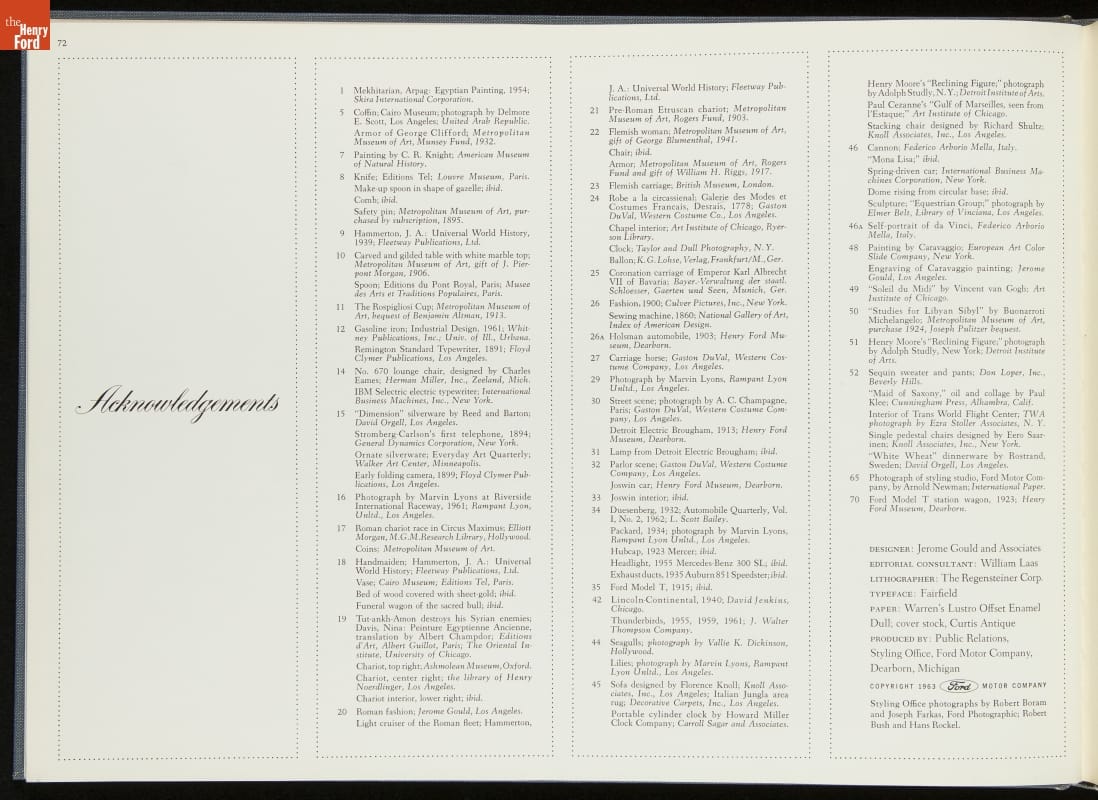 the
Henry
Ford
72
Acknowledgements
1 Mekhitarian, Arpag: Egyptian Painting, 1954;
Skira International Corporation.
5 Coffin; Cairo Museum; photograph by Delmore
E. Scott, Los Angeles; United Arab Republic.
Armor of George Clifford; Metropolitan
Museum of Art, Munsey Fund, 1932.
7 Painting by C. R. Knight; American Museum
of Natural History.
8 Knife; Editions Tel; Louvre Museum, Paris.
Make-up spoon in shape of gazelle; ibid.
Comb; ibid.
Safety pin; Metropolitan Museum of Art, pur-
chased by subscription, 1895.
9 Hammerton, J. A.: Universal World History,
1939; Fleetway Publications, Ltd.
10 Carved and gilded table with white marble top;
Metropolitan Museum of Art, gift of J. Pier-
pont Morgan, 1906.
Spoon; Editions du Pont Royal, Paris; Musee
des Arts et Traditions Populaires, Paris.
11 The Rospigliosi Cup; Metropolitan Museum of
Art, bequest of Benjamin Altman, 1913.
12 Gasoline iron; Industrial Design, 1961; Whit-
ney Publications, Inc.; Univ. of Ill., Urbana.
Remington Standard Typewriter, 1891; Floyd
Clymer Publications, Los Angeles.
14 No. 670 lounge chair, designed by Charles
Eames; Herman Miller, Inc., Zeeland, Mich.
IBM Selectric electric typewriter; International
Business Machines, Inc., New York.
15 "Dimension" silverware by Reed and Barton;
David Orgell, Los Angeles.
Stromberg-Carlson's first telephone, 1894;
General Dynamics Corporation, New York.
Ornate silverware; Everyday Art Quarterly;
Walker Art Center, Minneapolis.
Early folding camera, 1899; Floyd Clymer Pub-
lications, Los Angeles.
16 Photograph by Marvin Lyons at Riverside
International Raceway, 1961; Rampant Lyon,
Unltd., Los Angeles.
17 Roman chariot race in Circus Maximus; Elliott
Morgan, M.G.M. Research Library, Hollywood.
Coins; Metropolitan Museum of Art.
18 Handmaiden; Hammerton, J. A.: Universal
World History; Fleetway Publications, Ltd.
Vase; Cairo Museum; Editions Tel, Paris.
Bed of wood covered with sheet-gold; ibid.
Funeral wagon of the sacred bull; ibid.
19 Tut-ankh-Amon destroys his Syrian enemies;
Davis, Nina: Peinture Egyptienne Ancienne,
translation by Albert Champdor; Editions
d'Art, Albert Guillot, Paris; The Oriental In-
stitute, University of Chicago.
Chariot, top right; Ashmolean Museum, Oxford.
Chariot, center right; the library of Henry
Noerdlinger, Los Angeles.
Chariot interior, lower right; ibid.
20 Roman fashion; Jerome Gould, Los Angeles.
Light cruiser of the Roman fleet; Hammerton,
J. A.: Universal World History; Fleetway Pub-
lications, Ltd.
21 Pre-Roman Etruscan chariot; Metropolitan
Museum of Art, Rogers Fund, 1903.
22 Flemish woman; Metropolitan Museum of Art,
gift of George Blumenthal, 1941.
Chair; ibid.
Armor; Metropolitan Museum of Art, Rogers
Fund and gift of William H. Riggs, 1917.
23 Flemish carriage; British Museum, London.
24 Robe a la circassienal; Galerie des Modes et
Costumes Francais, Desrais, 1778; Gaston
DuVal, Western Costume Co., Los Angeles.
Chapel interior; Art Institute of Chicago, Ryer-
son Library.
Clock; Taylor and Dull Photography, N.Y.
Ballon; K. G. Lohse, Verlag, Frankfurt/M., Ger.
25 Coronation carriage of Emperor Karl Albrecht
VII of Bavaria; Bayer.-Verwaltung der staatl.
Schloesser, Gaerten und Seen, Munich, Ger.
26 Fashion, 1900; Culver Pictures, Inc., New York.
Sewing machine, 1860; National Gallery of Art,
Index of American Design.
26A Holsman automobile, 1903; Henry Ford Mu-
seum, Dearborn.
27 Carriage horse; Gaston DuVal, Western Cos-
tume Company, Los Angeles.
29 Photograph by Marvin Lyons, Rampant Lyon
Unltd., Los Angeles.
30 Street scene; photograph by A. C. Champagne,
Paris; Gaston DuVal, Western Costume Com-
pany, Los Angeles.
Detroit Electric Brougham, 1913; Henry Ford
Museum, Dearborn.
31 Lamp from Detroit Electric Brougham; ibid.
32 Parlor scene; Gaston DuVal, Western Costume
Company, Los Angeles.
Joswin car; Henry Ford Museum, Dearborn.
33 Joswin interior; ibid.
34 Duesenberg, 1932; Automobile Quarterly, Vol.
I, No. 2, 1962; L. Scott Bailey.
Packard, 1934; photograph by Marvin Lyons,
Rampant Lyon Unltd., Los Angeles.
Hubcap, 1923 Mercer; ibid.
Headlight, 1955 Mercedes-Benz 300 SL; ibid.
Exhaust ducts, 1935 Auburn 851 Speedster; ibid.
35 Ford Model T, 1915; ibid.
42 Lincoln-Continental, 1940; David Jenkins,
Chicago.
Thunderbirds, 1955, 1959, 1961; J. Walter
Thompson Company.
44 Seagulls; photograph by Vallie K. Dickinson,
Hollywood.
Lilies; photograph by Marvin Lyons, Rampant
Lyon Unltd., Los Angeles.
45 Sofa designed by Florence Knoll; Knoll Asso-
ciates, Inc., Los Angeles; Italian Jungla area
rug; Decorative Carpets, Inc., Los Angeles.
Portable cylinder clock by Howard Miller
Clock Company; Carroll Sagar and Associates.
Henry Moore's "Reclining Figure;" photograph
by Adolph Studly, N.Y.; Detroit Institute of Arts.
Paul Cezanne's "Gulf of Marseilles, seen from
l'Estaque;" Art Institute of Chicago.
Stacking chair designed by Richard Shultz;
Knoll Associates, Inc., Los Angeles.
46 Cannon; Federico Arborio Mella, Italy.
"Mona Lisa;" ibid.
Spring-driven car; International Business Ma-
chines Corporation, New York.
Dome rising from circular base; ibid.
Sculpture; "Equestrian Group;" photograph by
Elmer Belt, Library of Vinciana, Los Angeles.
46A Self-portrait of da Vinci, Federico Arborio
Mella, Italy.
48 Painting by Caravaggio; European Art Color
Slide Company, New York.
Engraving of Caravaggio painting; Jerome
Gould, Los Angeles.
49 "Soleil du Midi" by Vincent van Gogh; Art
Institute of Chicago.
50 "Studies for Libyan Sibyl" by Buonarroti
Michelangelo; Metropolitan Museum of Art,
purchase 1924, Joseph Pulitzer bequest.
51 Henry Moore's "Reclining Figure;" photograph
by Adolph Studly, New York; Detroit Institute
of Arts.
52 Sequin sweater and pants; Don Loper, Inc.,
Beverly Hills.
"Maid of Saxony," oil and collage by Paul
Klee; Cunningham Press, Alhambra, Calif.
Interior of Trans World Flight Center; TWA
photograph by Ezra Stoller Associates, N. Y.
Single pedestal chairs designed by Eero Saar-
inen; Knoll Associates, Inc., New York.
"White Wheat" dinnerware by Rostrand,
Sweden; David Orgell, Los Angeles.
65 Photograph of styling studio, Ford Motor Com-
pany, by Arnold Newman; International Paper.
70 Ford Model T station wagon, 1923; Henry
Ford Museum, Dearborn.
DESIGNER: Jerome Gould and Associates
EDITORIAL CONSULTANT: William Laas
LITHOGRAPHER: The Regensteiner Corp.
TYPEFACE: Fairfield
PAPER: Warren's Lustro Offset Enamel
Dull; cover stock, Curtis Antique
PRODUCED BY: Public Relations,
Styling Office, Ford Motor Company,
Dearborn, Michigan
COPYRIGHT 1963 Ford MOTOR COMPANY
Styling Office photographs by Robert Boram
and Joseph Farkas, Ford Photographic; Robert
Bush and Hans Rockel.